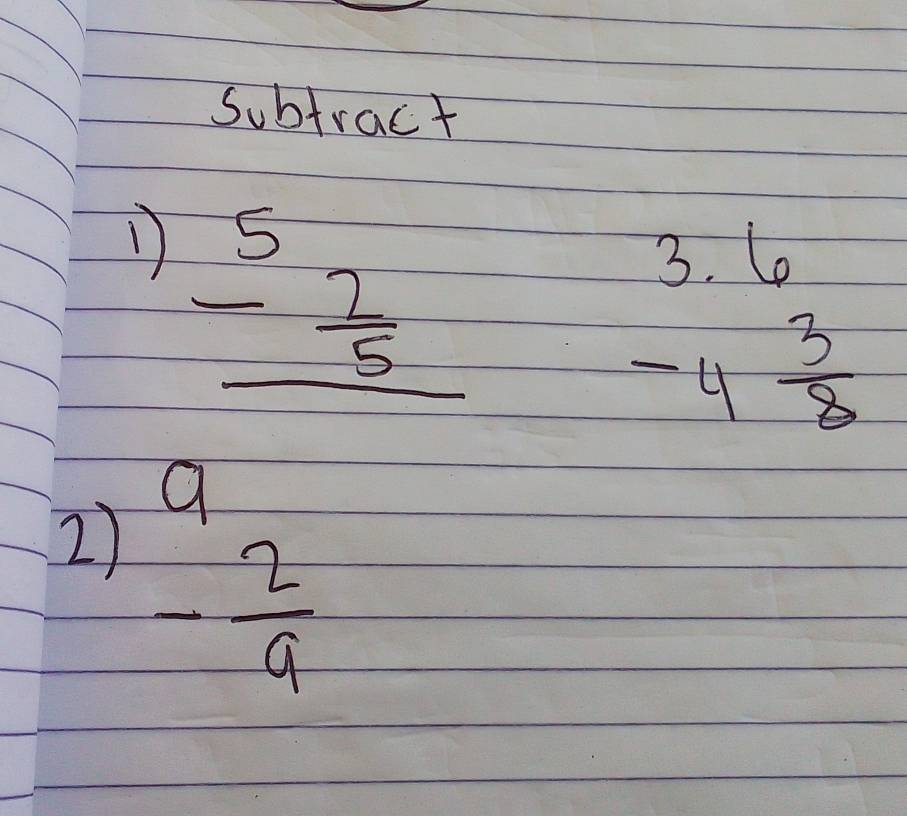 Subtract
1) 5
- 2/5
2) 9
- 2/9
3. 6
- 4 3/8